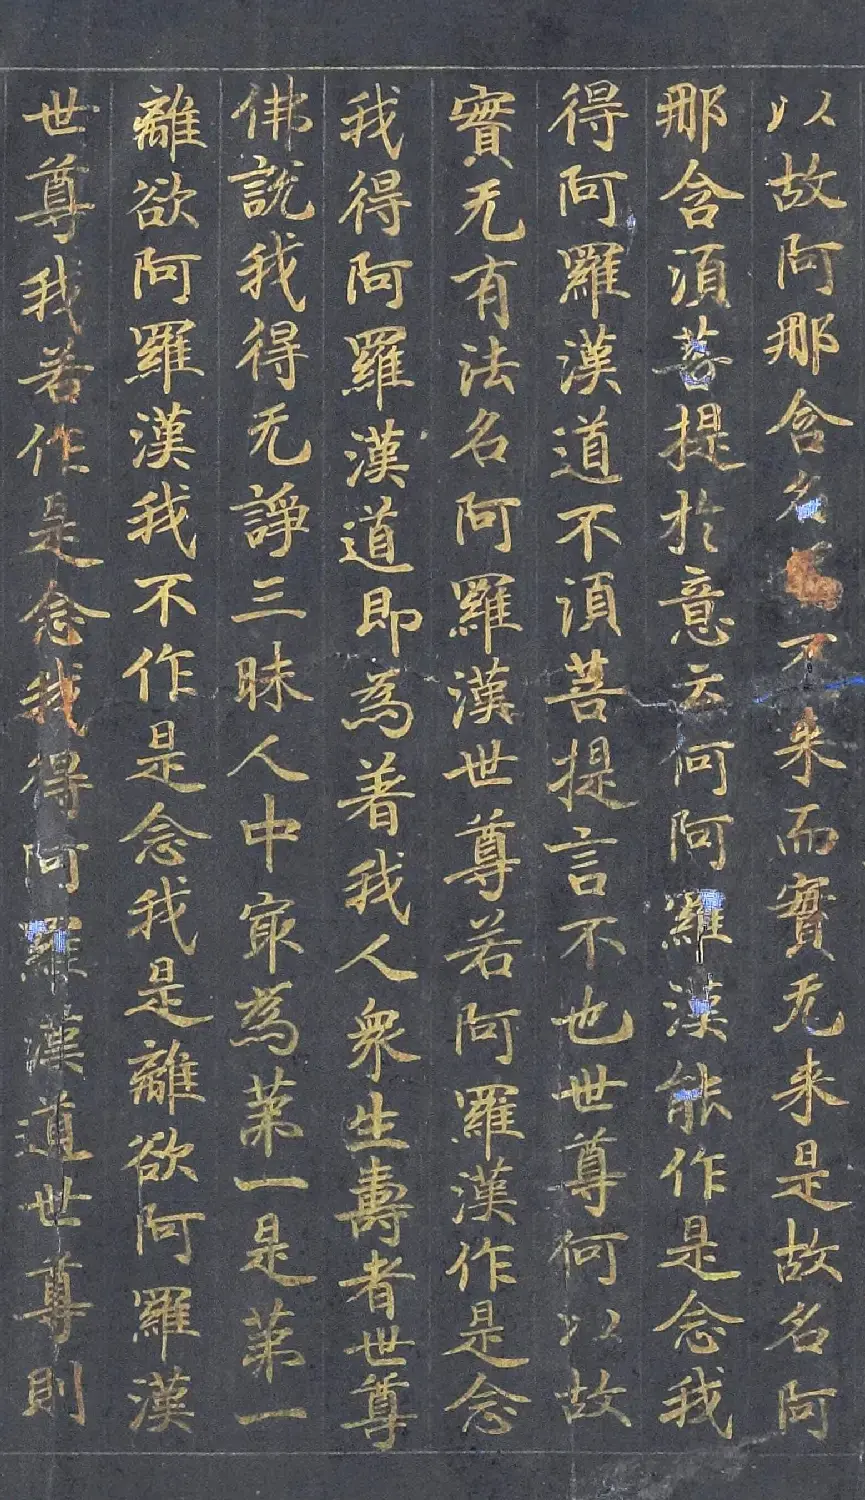 以故阿那含名不来而實无来是故名阿
那含湏菩提扵意云何阿羅漢能作是念我
得阿羅漢道不湏菩提言不也世尊何以故
實无有法名阿羅漢世尊若阿羅漢作是念
我得阿羅漢道即為著我人衆生壽者世尊
佛說我得无諍三昧人中冣為苐一是苐一
離欲阿羅漢我不作是念我是離欲阿羅漢
世尊我若作是念我得阿羅漢道世尊則